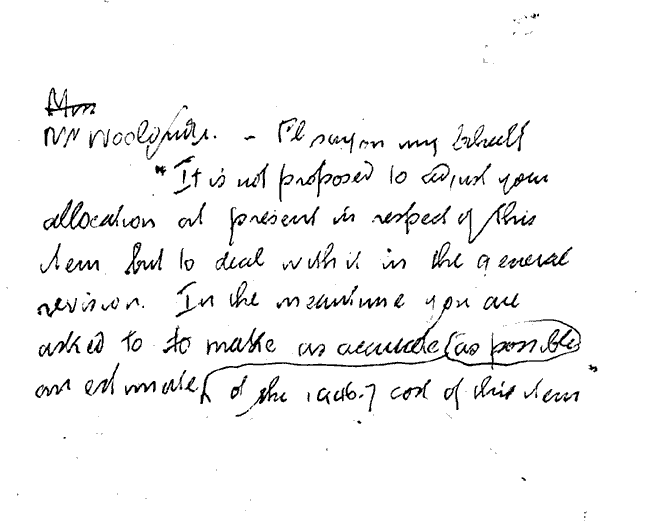 Mr Woolgate. - Pl say on my behalf
"It is not proposed to adjust your
allocation at present in respect of this
item but to deal with it in the general
revision. In the meantime you are
asked to to make as accurate as possible
an estimate of the 1946-7 cost of this item"